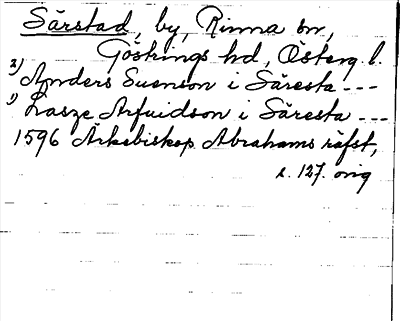 Särstad, by, Rinna sn,
Göstrings hd, Österg. l.
2) Anders Suenson i Säresta ---
1) Lasze Arfuidson i Säresta ---
1596 Ärkebiskop Abrahams räfst,
s. 127. orig